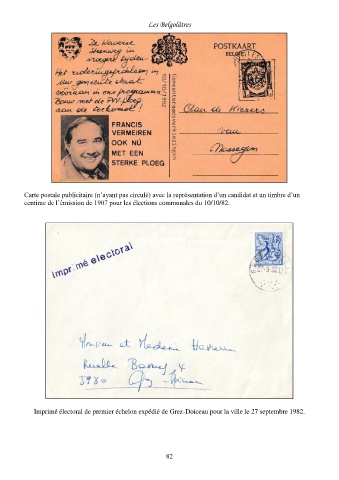 Les Belgolâtres
De Waverse
Steenweg in
vroegere tijden.
Het rioleringsprobleem in
uw gemeente staat
vooraan in ons programma
Bouw met de PVV ploeg
aan de toekomst!
10/10/1982
Gemeenteraadsverkiezingen
POSTKAART
BELGIË
Aan de Kiezers
van
Massegem
FRANCIS
VERMEIREN
OOK NÚ
MET EEN
STERKE PLOEG
Carte postale publicitaire (n'ayant pas circulé) avec la représentation d'un candidat et un timbre d'un
centime de l'émission de 1907 pour les élections communales du 10/10/82.
Imprimé électoral
Monsieur et Madame
Ruelle 4
Imprimé électoral de premier échelon expédié de Grez-Doiceau pour la ville le 27 septembre 1982.
82